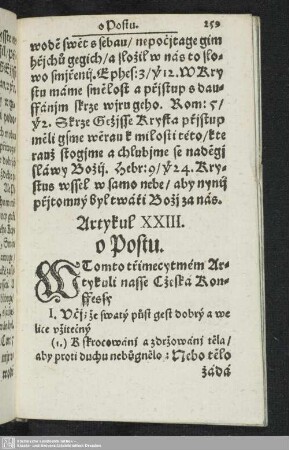 o Postu. 259
wodě swět s sebau/ nepočjtage gim
hřjchů gegich/ a složil w nás to slo-
wo smjření. Ephes: 3/ ẏ 12. W Kry
stu máme smělost a přjstup s dau-
ffánjm skrze wjru geho. Rom: 5/
ẏ 2. Skrze Gežjsse Krysta přjstup
měli gsme wěrau k milosti této/ kte
rauž stogjme a chlubjme se naděgj
sláwy Božij. Hebr: 9/ ẏ 24. Kry-
stus wssel w samo nebe/ aby nynij
přjtomný byl twáři Boží za nás.
Artykul XXIII.
o Postu.
W Tomto třimecytmém Ar-
tykuli nasse Cžeská Kon-
ffessy
I. Včj: že swatý půst gest dobrý a we
lice vžitečný
(1.) K skrocowání a zdržowání těla/
aby proti duchu nebůgnělo: Nebo tělo
žádá